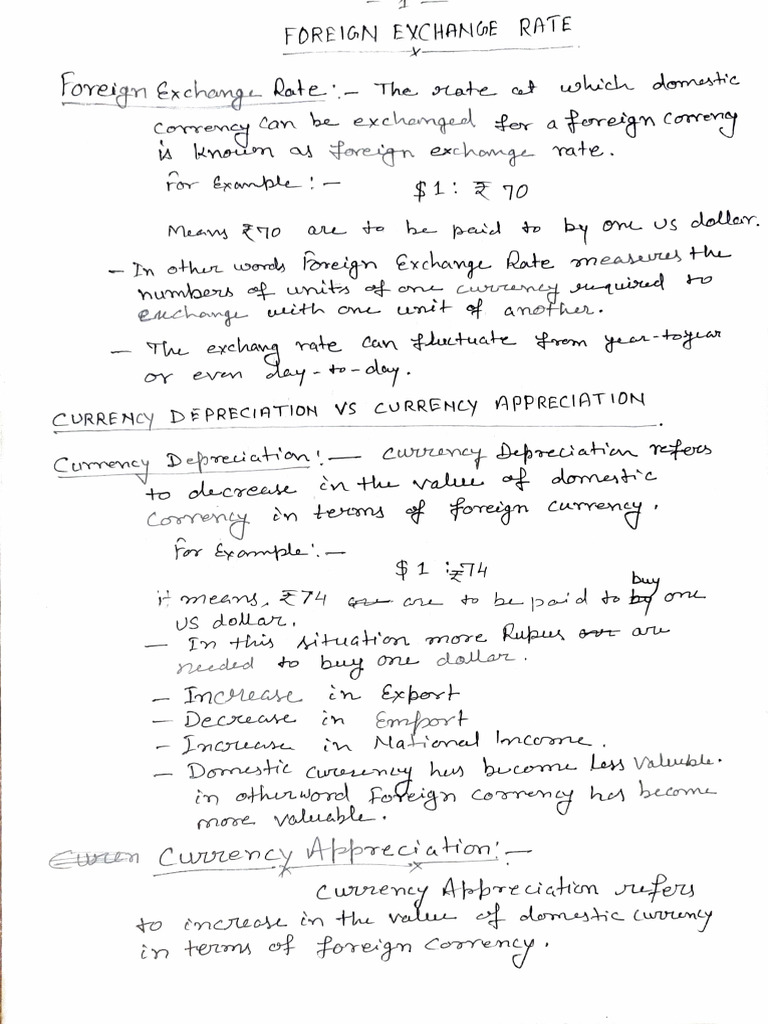 - 1 -
FOREIGN EXCHANGE RATE
x
Foreign Exchange Rate :- The rate at which domestic
corrency can be exchanged for a foreign corrency
is known as foreign exchange rate.
For Example :- $1 : ₹ 70
Means ₹70 are to be paid to by one US dollar.
- In other words Foreign Exchange Rate measures the
numbers of units of one currency required to
exchange with one unit of another.
- The exchang rate can fluctuate from year-to year
or even day-to-day.
CURRENCY DEPRECIATION VS CURRENCY APPRECIATION
Currency Depreciation :- Currency Depreciation refers
to decrease in the value of domestic
corrency in terms of foreign currency.
For Example :-
$1 : ₹74
it means, ₹74 are to be paid to buy one
US dollar.
- In this situation more Rupus are
needed to buy one dollar.
- Increase in Export
- Decrease in Emport
- Increase in National Income.
- Domestic currency has become less valuable.
in otherword Foreign corrency has become
more valuable.
Currency Appreciation :-
Currency Appreciation refers
to increase in the value of domestic currency
in terms of foreign corrency.